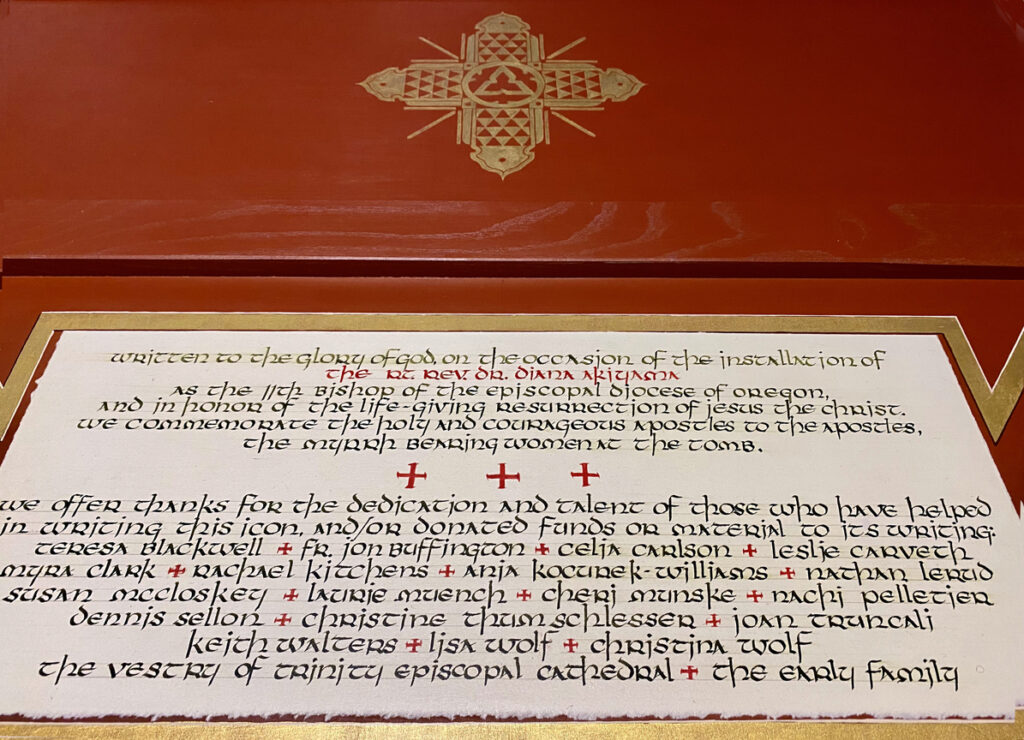 written to the glory of god, on the occasion of the installation of
the rt. rev. dr. diana akiyama
as the 11th bishop of the episcopal diocese of oregon,
and in honor of the life-giving resurrection of jesus the christ.
we commemorate the holy and courageous apostles to the apostles,
the myrrh bearing women at the tomb.
we offer thanks for the dedication and talent of those who have helped
in writing this icon, and/or donated funds or material to its writing:
teresa blackwell + fr. jon buffington + celia carlson + leslie carveth
myra clark + rachael kitchens + anja kocurek-williams + nathan lerud
susan mccloskey + laurie muench + cheri munske + nachi pelletier
dennis sellon + christine thumschlesser + joan truncali
keith walters + lisa wolf + christina wolf
the vestry of trinity episcopal cathedral + the early family